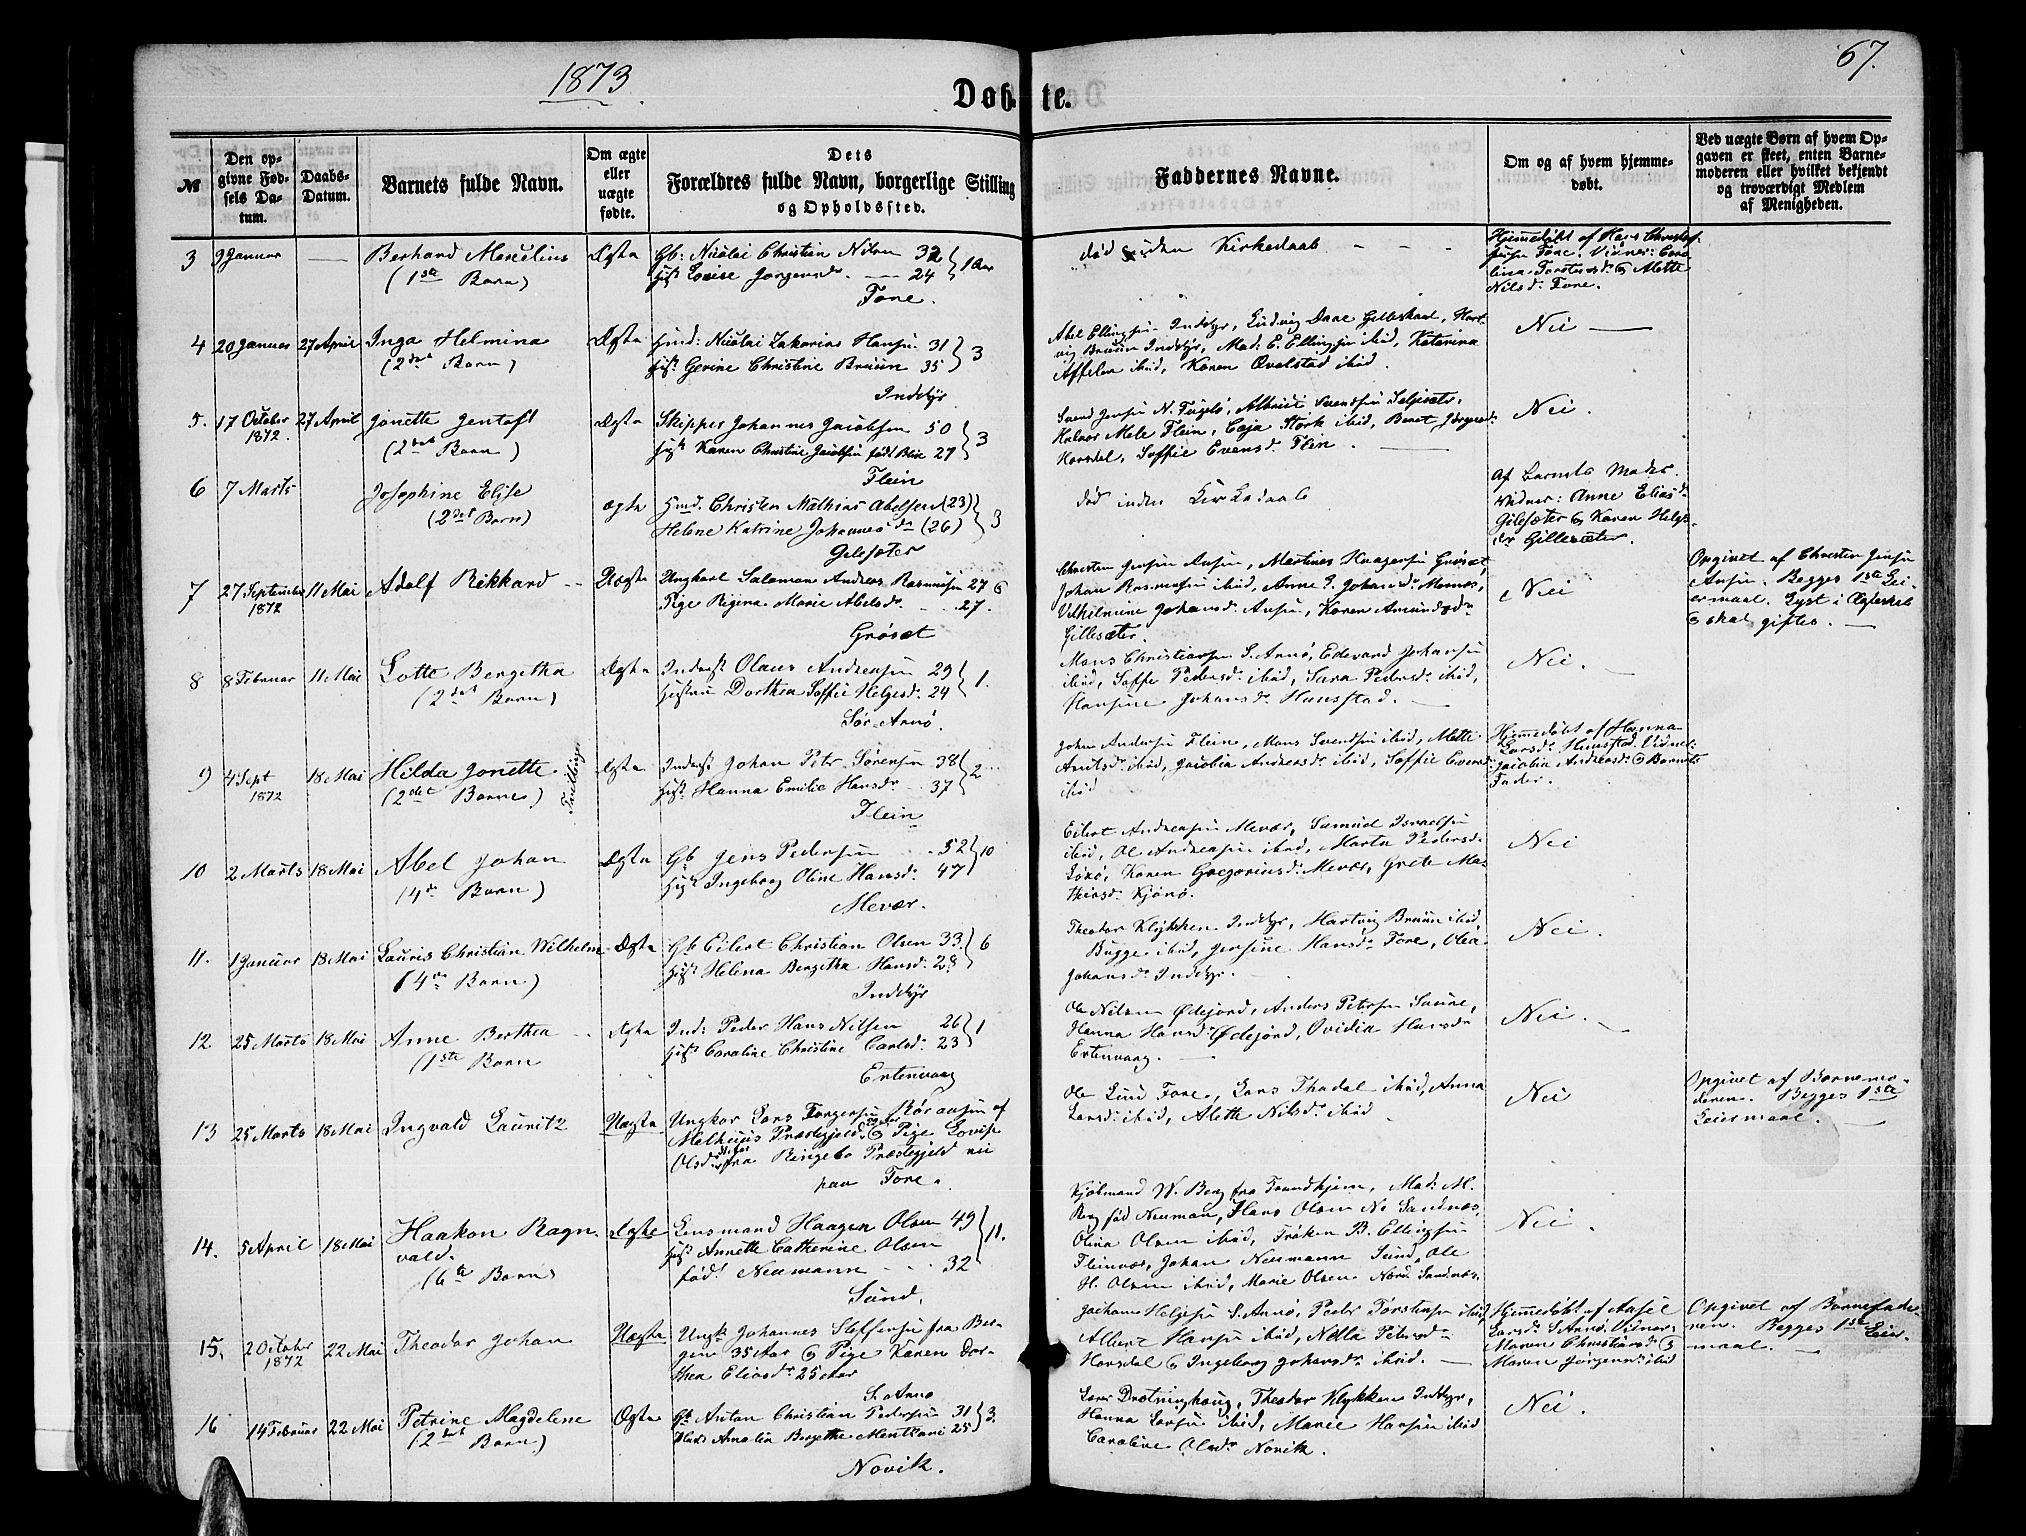 1873
67.
Døbte.
№
Den op-
givne Fød-
sels Da-
tum.
Daabs-
Datum.
Barnets fulde Navn.
Om ægte
eller
uægte
fødte.
Dets
Forældres fulde Navn, borgerlige Stilling
og Opholdssted.
Faddernes Navne.
Om og af hvem hjemme-
døbt.
Ved uægte Børn af hvem Op-
gaven er skeet, enten Barne-
moderen eller hvilket bekjendt
og troværdigt Medlem
af Menigheden.
3 9 Januar — Berhard Marcelius Ægte
(1ste Barn)
Gb: Nicolai Christian Nilsen 32
Hust. Lovise Jørgensdr. — 24 } 1 Aar
Fore.
død uden Kirkedaab - - -
Hjemmedøbt af Hans Christof-
Fore. Vidner: Caro-
lina Torstensd. & Mette
Nilsd. Fore.
4 20 Januar 27 April Inga Helmina Ægte
(2det Barn)
Hmd: Nicolai Zakarias Hansen 31
Hust. Gerine Christine Bruun 35 } 3
Inddyr
Abel Ellingsen Inddyr, Ludvig Daae Gilleskaal, Hart-
vig Bruun Inddyr, Mad. E. Ellingsen ibid, Katarina
ibid, Karen Qvalstad ibid.
Nei —
5. 17 October 27 April Jonette Jentoft Ægte
1872.
(2det Barn)
Skipper Johannes Jacobsen 50
Hust. Karen Christine Jacobsen født 27 } 3
Flein
Svend Jensen N. Fugelø, Svendsen
Halvor Mele Flein, Caja Stórk ibid, Berit
Horsdal, Soffie Evensd. Flein
Nei.
6 7 Marts Josephine Elise ægte
(2det Barn)
Hmd. Christen Mathias Abelsen (23)
Helene Katrine Johannesdr (26) } 3
Gilesæter
død uden Kirkedaab
Af Barnets Moder.
Vidner: Anne Eliasd.
Gilesæter & Karen Helgs-
dr Gillesæter.
7 27 September 11 Mai Adolf Rikkard Uægte
1872
Ungkarl Salamon Andreas Rasmusen 27 6
Pige Regina Marie Abelsdr. 27.
Grøset
Christen Jensen Martines Haagensen Grøset,
Johan Rasmusen ibid, Anne J. Johansdr
Vilhelmine Johansd. Karen Amundsdr
Gillesæter.
Nei
Opgivet af Christen Jensen
Begges 1ste Lei-
ermaal. Lyst i Ægteskab
& skal giftes. —
8 8 Februar 11 Mai Lotte Bergetha Ægte
(2det Barn)
Inderst Olaus Andreasen 29
Hustru Dorthea Soffie Helgesd. 24 } 1.
Sør-Arnø.
Mons Christiansen S. Arnø, Edevard Johansen
ibid, Soffe Pedersd. ibid, Sara Pedersd. ibid,
Hansine Johansd. Hunstad. —
Nei.
9 4 Sept 18 Mai Hilda Jonette Ægte
1872
(2det Barn) Tvillinge
Inderst Johan Petr Sørensen 38
Hust. Hanna Emilie Hansdr 37 } 2
Flein
John Andersen Flein, Mons Svendsen ibid, Mette
ibid, Jacobia Andreasd. ibid, Soffie Evensd.
ibid
Hjemmedøbt af Hanna
Larsd. Hunstad. Vidner
Jacobia Andreasd. & Barnets
Fader.
10 2 Marts 18 Mai Abel Johan Ægte
(4de Barn)
Gb Jens Pedersen 52
Hust. Ingeborg Oline Hansd. 47 } 10
Mevær.
Eilert Andreasen Mevær, Samuel Israelsen
ibid, Ole Andreasen ibid, Marta Pedersd.
Karen Gregoriusd. Mevær, Grete Ma-
thiasd. Kjønø.
Nei
11. 1 Januar 18 Mai Lauris Christian Wilhelm Ægte
(4de Barn)
Gb Eilert Christian Olsen 33.
Hust. Helena Bergetha Hansd. 28 } 6
Inddyr
Theodor Klykken Inddyr, Hartvig Bruun ibid,
Bugge ibid, Jensine Hansd. Fore, Olea
Johansd. Inddyr.
Nei.
12. 25 Marts 18 Mai Anne Berthea Ægte
(1ste Barn
Ind: Peder Hans Nilsen 26
Hust. Caroline Christine Carlsd. 23 } 1
Ertenvaag
Ole Nilsen Ødejord, Anders Petersen
Hanna Hansd. Ødejord, Ovidia Hansdr
Ertenvaag.
Nei.
13 25 Marts 18 Mai Ingvald Lauritz Uægte
Ungkar Lars Torgersen af
Melhuus Præstegjeld & Pige Lovise
Olsd. fra Ringebo Præstegjeld nu
paa Fore.
Ole Lund Fore, Lars Thadal ibid, Anna
Larsd. ibid, Alette Nilsd. ibid
Nei
Opgivet af Barnemo-
deren. Begges 1ste
Leiermaal.
14. 5 April 18 Mai Haakon Ragn- Ægte
vald.
(6te Barn)
Lensmand Haagen Olsen 49
Hust. Annette Catherine Olsen
født Neumann 32 } 11.
Sund.
Kjøbmand W. Berg fra Trondhjem, Mad. M.
Berg fød Neuman, Hans Olsen No Sandnæs,
Olina Olsen ibid, Frøken B. Ellingsen
Fleinvær, Johan Neumann Sund, Ole
H. Olsen ibid, Marie Olsen Nord Sandnæs.
Nei.
15. 2 October 22 Mai Theodor Johan Uægte
1872
Ungk. Johannes fra Ber-
gen 35 Aar & Pige Karen Dor-
thea Eliasdr 25 Aar
S. Arnø
Jochum Helgesen S. Arnø, Peder Torstensen ibid,
Albert Hansen ibid, Nella Petersdr
Horsdal & Ingeborg Johansdr ibid. —
Hjemmedøbt af
Larsd. S Arnø. Vidner
Maren Christiansd &
Maren Jørgensd. ibid
Opgivet af Barnefade-
ren. Begges 1ste Leier-
maal. —
16 14 Februar 22 Mai Petrine Magdelene Ægte
(2det Barn)
Gb Anton Christian Pedersen 31
Amalia Bergethe 25 } 3.
Novik.
Lars Drotninghaug, Theodor Klykken Inddyr,
Hanna Larsen ibid, Marie Hansen ibid
Caroline Olsdr Novik.
Nei.